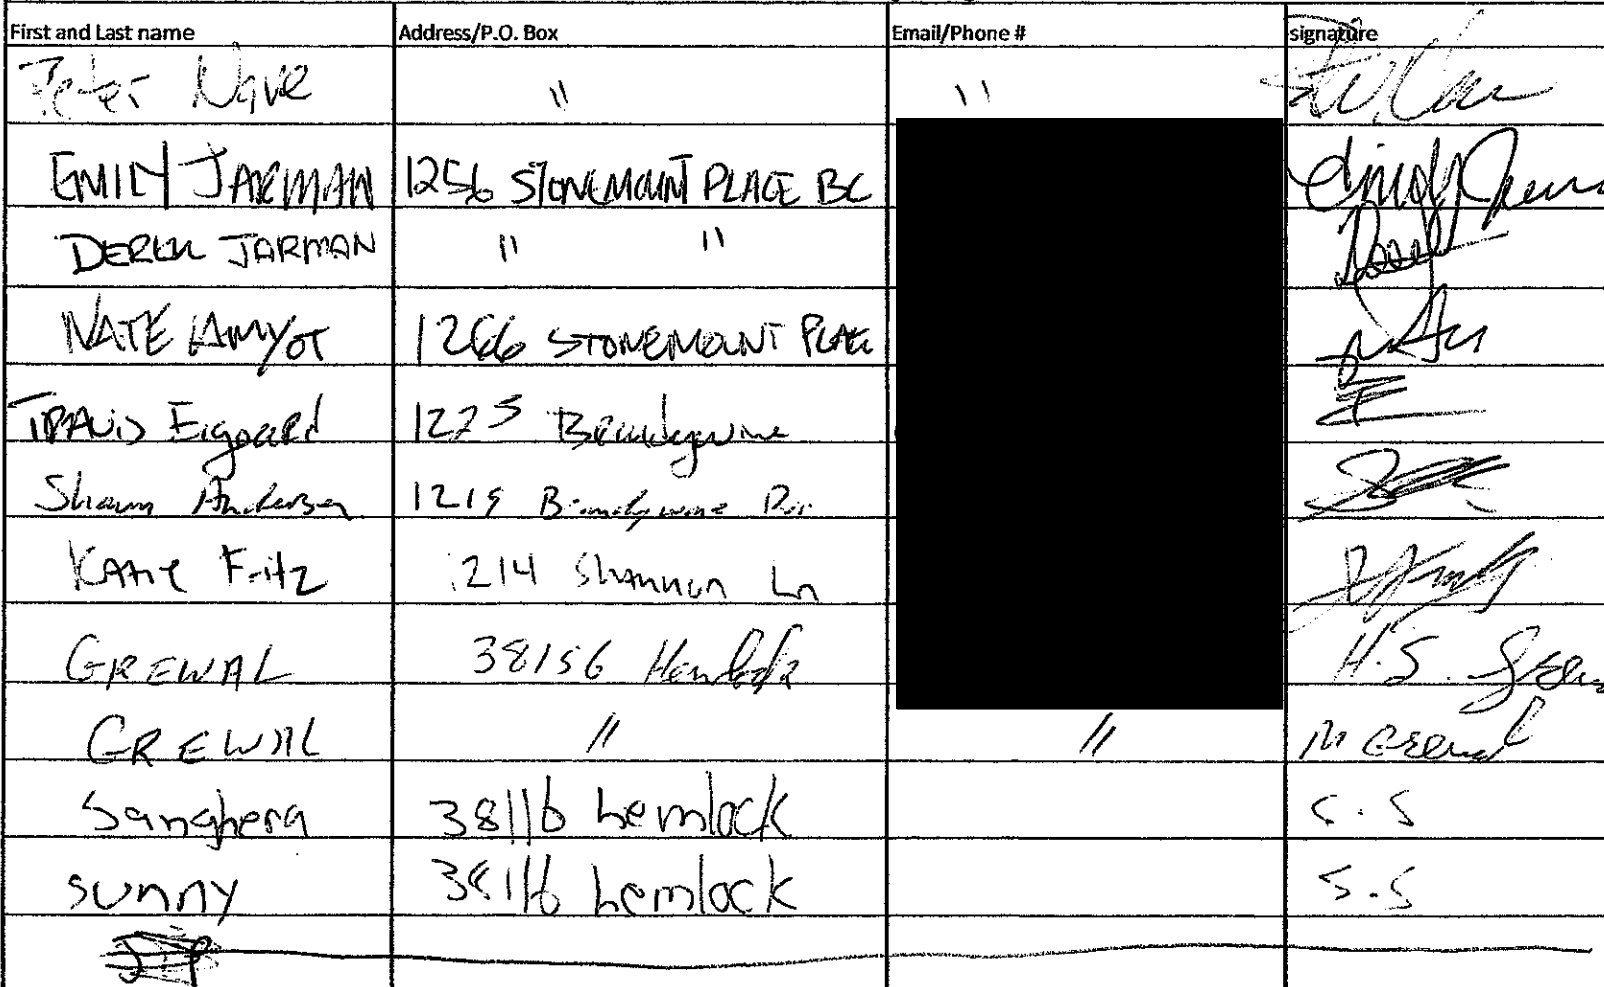 First and Last name Address/P.O. Box Email/Phone # signature
Peter Nave " "
EMILY JARMAN 1256 STONEMOUNT PLACE BC
DEREK JARMAN " "
NATE AMYOT 1266 STONEMOUNT PLACE
TRAVIS Eigaard 1225 Brandywine
Shawn Andersen 1219 Brandywine
Katie Fritz 1214 Shannon Ln
GREWAL 38156 Hemlock H.S.
GREWAL " " M Grewal
Sanghera 38116 hemlock S.S
sunny 38116 hemlock S.S